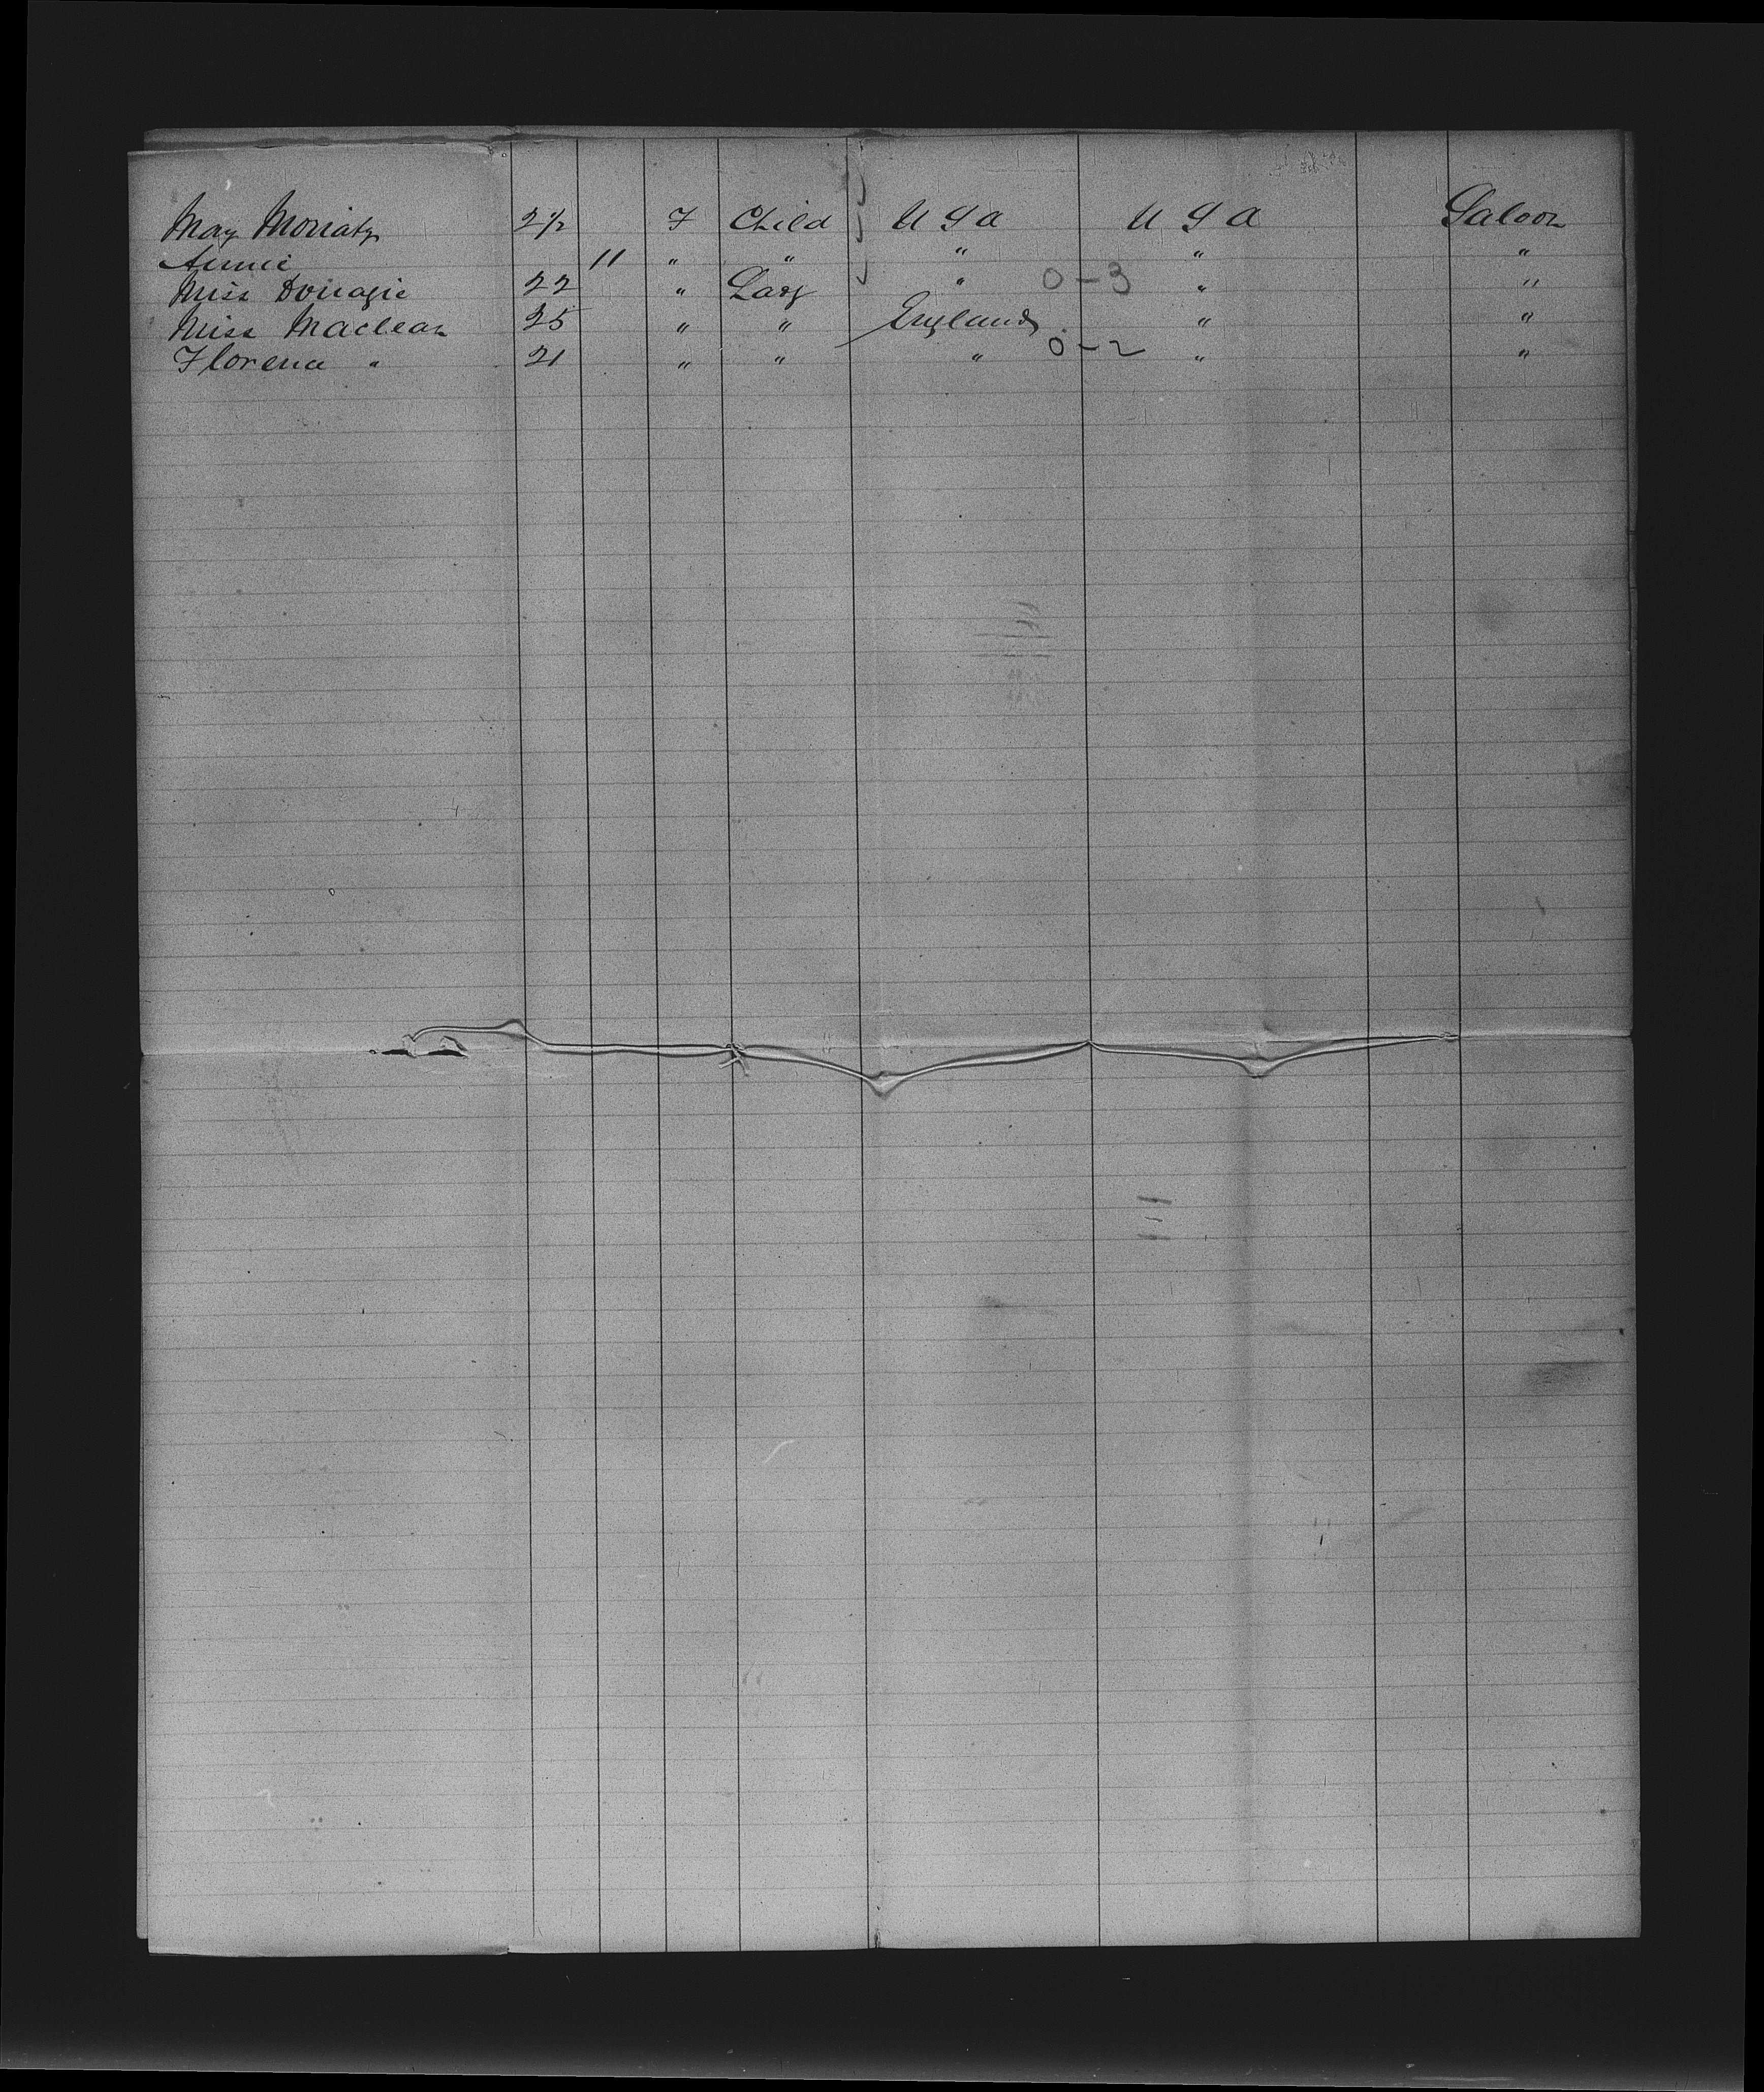 May Moriaty 2½ F Child U S A U S A Saloon
Annie 11 " " " " "
Miss 22 " Lady " 0-3 " "
Miss Maclean 25 " " England " "
Florence " 21 " " " 0-2 " "